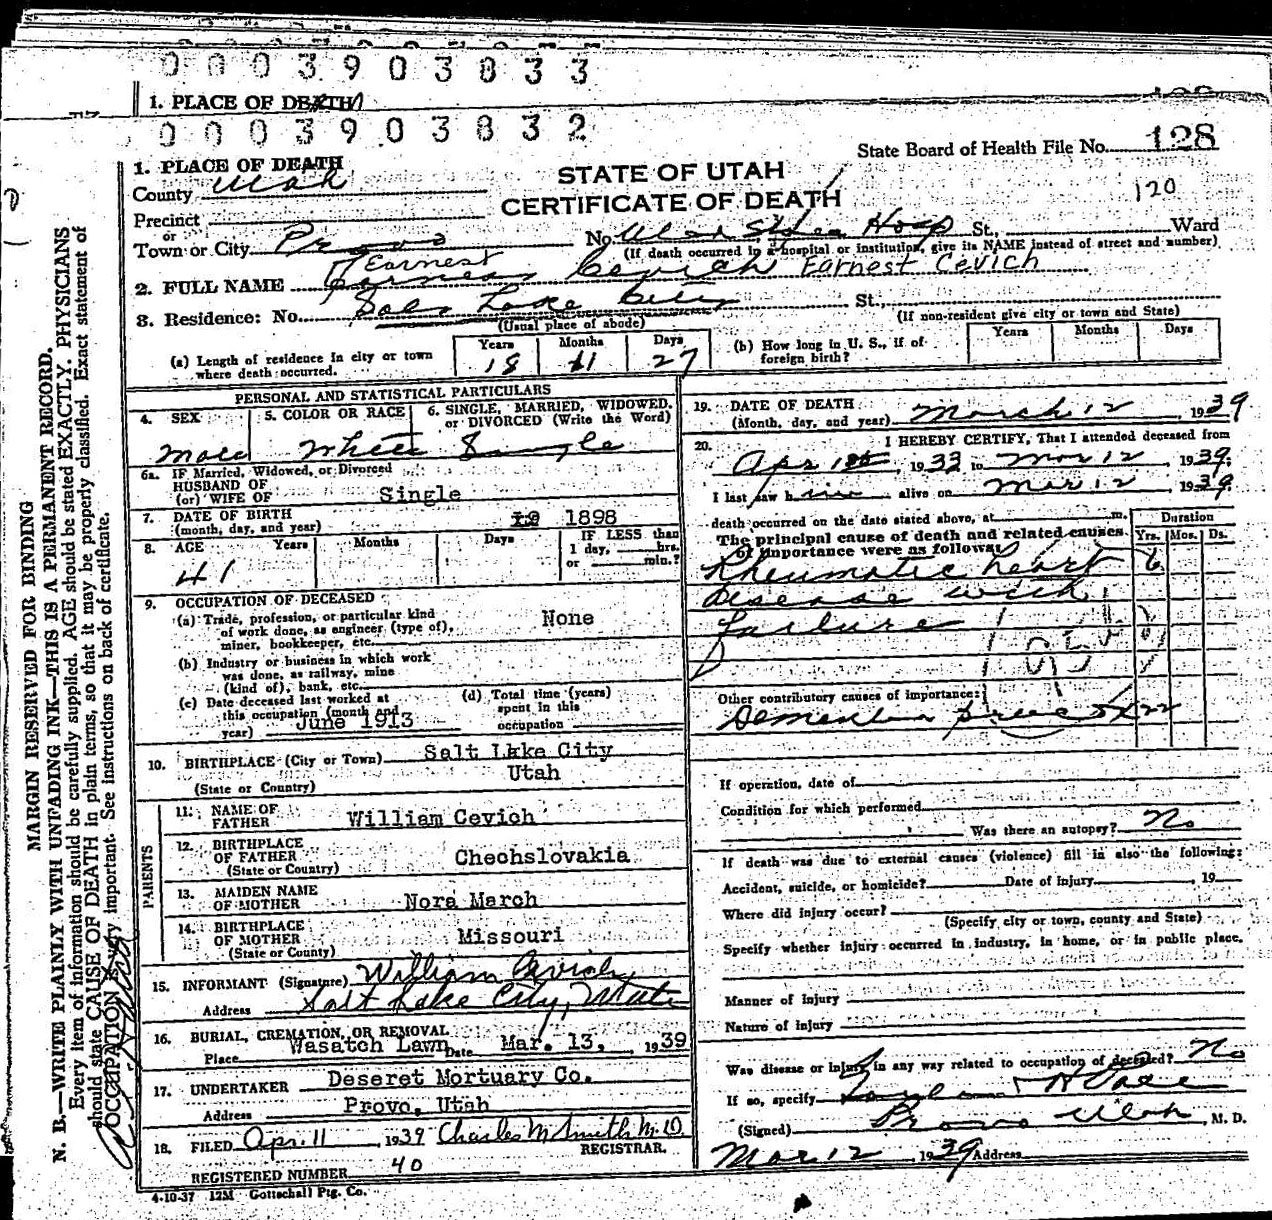 0003903833
1. PLACE OF DEATH
0003903832
State Board of Health File No. 128
120
STATE OF UTAH
CERTIFICATE OF DEATH
1. PLACE OF DEATH
County Utah
Precinct
or
Town or City Provo No. Utah State Hosp St., Ward
(If death occurred in a hospital or institution, give its NAME instead of street and number)
Earnest
2. FULL NAME Cevich Earnest Cevich
3. Residence: No. Salt Lake City St.,
(Usual place of abode) (If non-resident give city or town and State)
(a) Length of residence in city or town where death occurred. Years 18 Months 11 Days 27
(b) How long in U. S., if of foreign birth? Years Months Days
PERSONAL AND STATISTICAL PARTICULARS
4. SEX 5. COLOR OR RACE 6. SINGLE, MARRIED, WIDOWED, or DIVORCED (Write the Word)
Male White Single
6a. IF Married, Widowed, or Divorced
HUSBAND OF
(or) WIFE OF Single
7. DATE OF BIRTH
(month, day, and year) 19 1898
8. AGE Years Months Days IF LESS than 1 day, hrs. or min.?
41
9. OCCUPATION OF DECEASED
(a) Trade, profession, or particular kind of work done, as engineer (type of), miner, bookkeeper, etc. None
(b) Industry or business in which work was done, as railway, mine (kind of), bank, etc.
(c) Date deceased last worked at this occupation (month and year) June 1913
(d) Total time (years) spent in this occupation
10. BIRTHPLACE (City or Town) Salt Lake City
Utah
(State or Country)
PARENTS
11. NAME OF FATHER William Cevich
12. BIRTHPLACE OF FATHER (State or Country) Chechslovakia
13. MAIDEN NAME OF MOTHER Nora March
14. BIRTHPLACE OF MOTHER (State or County) Missouri
15. INFORMANT (Signature) William Cevich
Address Salt Lake City, Utah
16. BURIAL, CREMATION, OR REMOVAL
Place Wasatch Lawn Date Mar. 13, 1939
17. UNDERTAKER Deseret Mortuary Co.
Address Provo, Utah
18. FILED Apr. 11 1939 Charles M Smith M.D.
REGISTRAR.
REGISTERED NUMBER 40
4-10-37 12M Gottschall Ptg. Co.
19. DATE OF DEATH
(Month, day, and year) March 12 1939
20. I HEREBY CERTIFY, That I attended deceased from
Apr 1st, 1933 to Mar 12, 1939.
I last saw him alive on Mar 12 1939.
death occurred on the date stated above, at m.
The principal cause of death and related causes of importance were as follows:
Duration
Yrs. Mos. Ds.
Rheumatic heart 6
disease with
failure
Other contributory causes of importance:
Dementia praecox 22
If operation, date of
Condition for which performed
Was there an autopsy? No
If death was due to external causes (violence) fill in also the following:
Accident, suicide, or homicide? Date of injury , 19
Where did injury occur?
(Specify city or town, county and State)
Specify whether injury occurred in industry, in home, or in public place.
Manner of injury
Nature of injury
Was disease or injury in any way related to occupation of deceased? No
If so, specify
(Signed) Provo Utah, M. D.
Mar 12, 1939 Address
MARGIN RESERVED FOR BINDING
N. B.—WRITE PLAINLY WITH UNFADING INK—THIS IS A PERMANENT RECORD.
Every item of information should be carefully supplied. AGE should be stated EXACTLY. PHYSICIANS
should state CAUSE OF DEATH in plain terms, so that it may be properly classified. Exact statement of
OCCUPATION very important. See instructions on back of certificate.